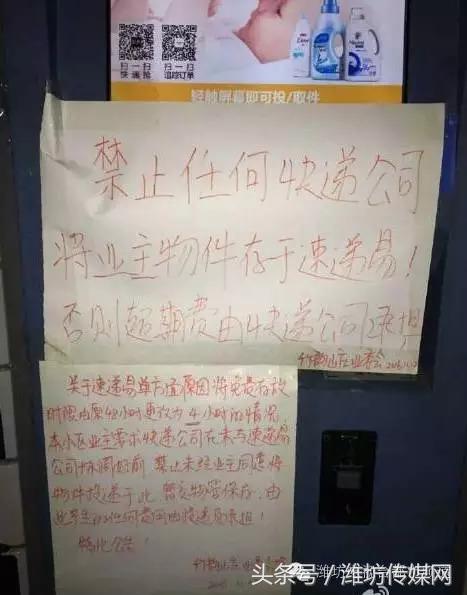 扫一扫
快递抢
扫一扫
追踪订单
轻触屏幕即可投/取件
禁止任何快递公司
将业主物件存于速递易！
否则超期费由快递公司承担
业委会
关于速递易单方面原因将免费存放
时限由原48小时更改为4小时的情况
本小区业主要求快递公司在未与速递易
公司协调好前，禁止未经业主同意将
物件投递于此，暂交物管保存，由
此产生的任何费用由投递员承担！
特此公告！
头条号／潍坊传媒网